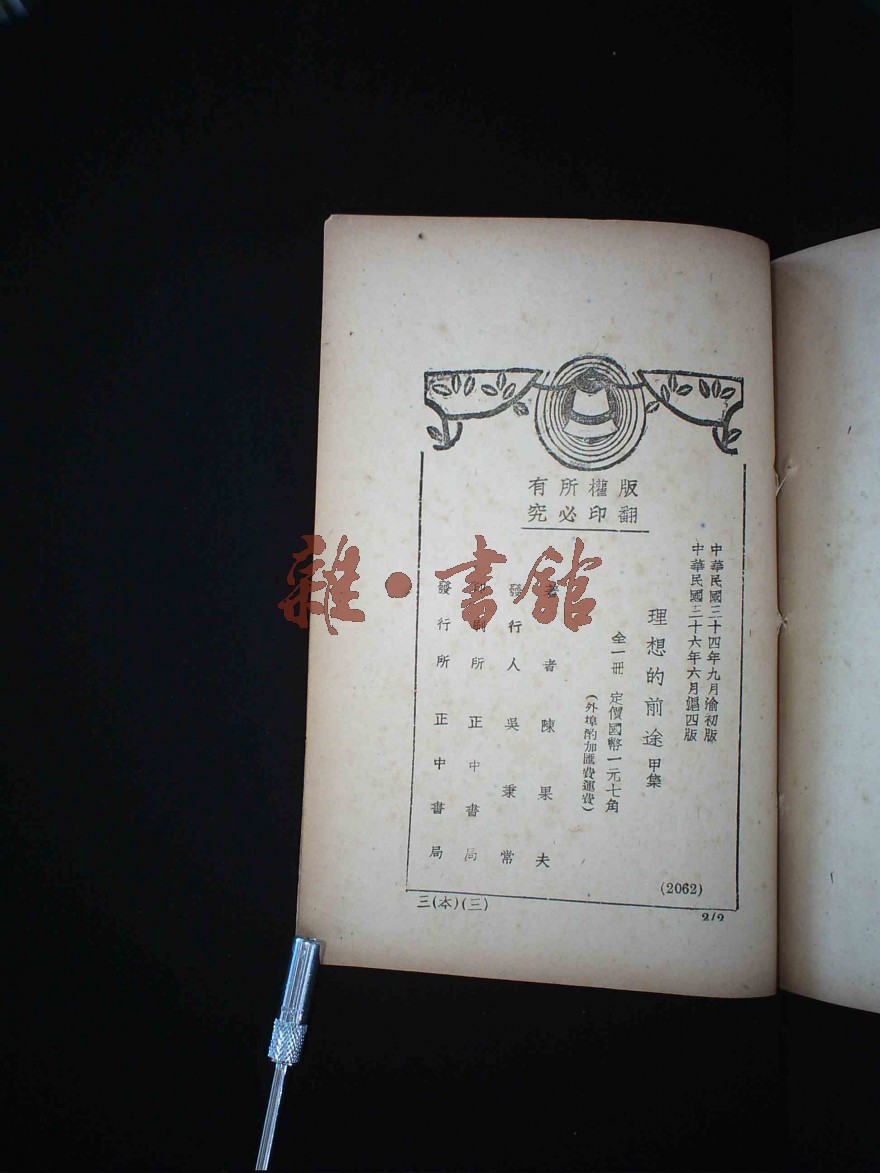 版權所有
翻印必究
中華民國三十四年九月渝初版
中華民國三十六年六月滬四版
理想的前途 甲集
全一冊 定價國幣一元七角
(外埠酌加匯費運費)
著者 陳果夫
發行人 吳秉常
印刷所 正中書局
發行所 正中書局
(2062)
三(本)(三)
2/2
雜·書館